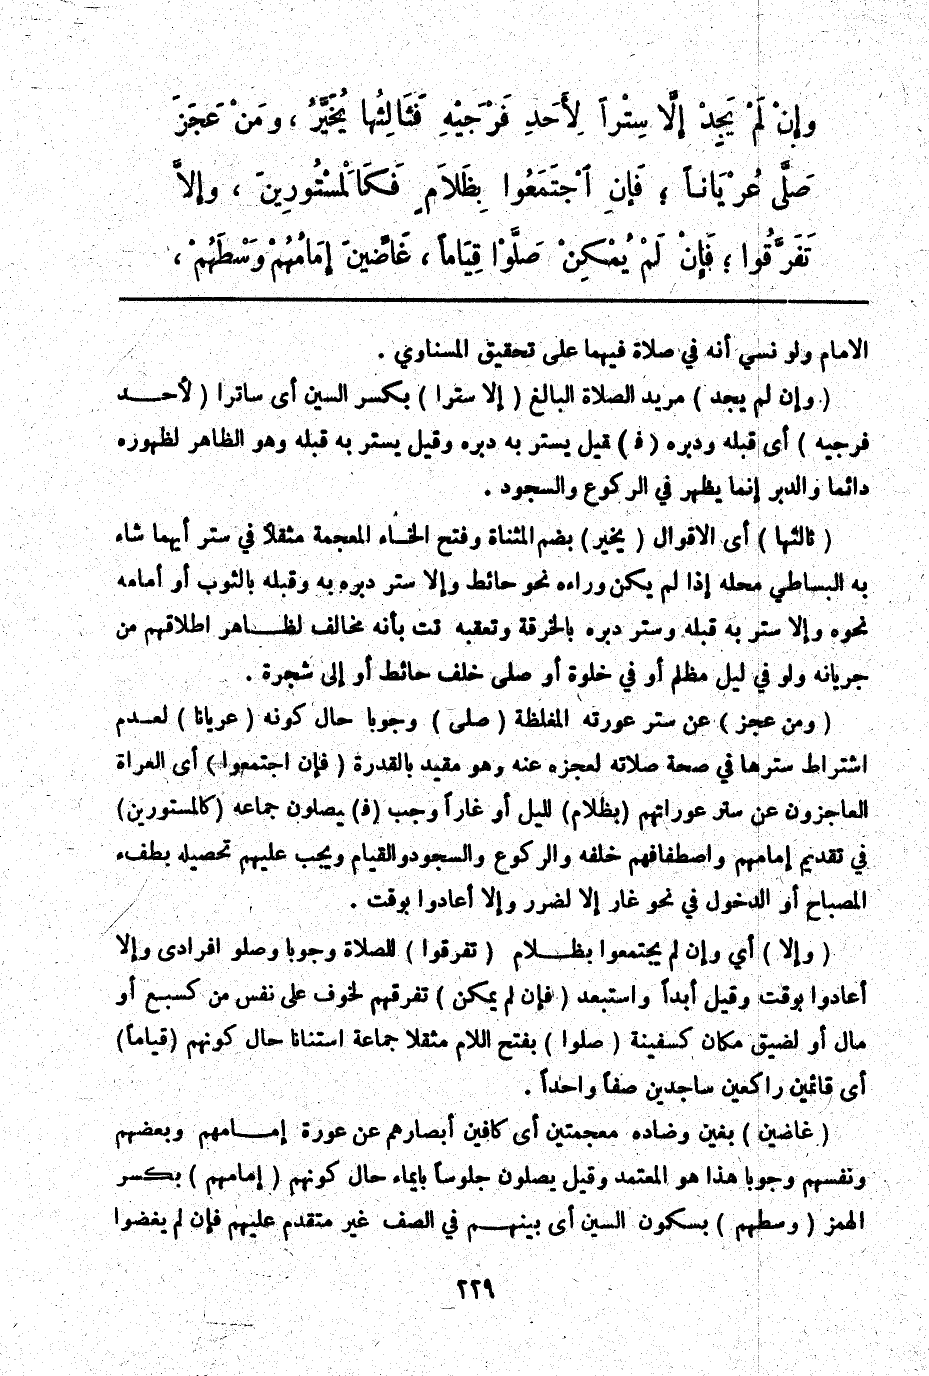 وإِنْ لَمْ يَجِدْ إِلَّا سِتْراً لِأَحَدِ فَرْجَيْهِ فَثَالِثُها يُخَيَّرُ ، ومَنْ عَجَزَ
صَلَّى عُرْيَاناً ؛ فَإِنِ اجْتَمَعُوا بِظَلاَمٍ فَكَالْمَسْتُورِينَ ، وإلاَّ
تَفَرَّقُوا ؛ فَإِنْ لَمْ يُمْكِنْ صَلَّوْا قِيَاماً ، غَاضِّينَ إِمَامُهُمْ وَسْطَهُمْ ،
الامام ولو نسي أنه في صلاة فيهما على تحقيق المسناوي .
( وإن لم يجد ) مريد الصلاة البالغ ( إلا سترا ) بكسر السين أى ساترا ( لأحــد
فرجيه ) أى قبله ودبره ( فـ ) قيل يستر به دبره وقيل يستر به قبله وهو الظاهر لظهوره
دائما والدبر إنما يظهر في الركوع والسجود .
( ثالثها ) أى الاقوال ( يخير ) بضم المثناة وفتح الخـاء المعجمة مثقلاً في ستر أيهما شاء
به البساطي محله إذا لم يكن وراءه نحو حائط وإلا ستر دبره به وقبله بالثوب أو أمامه
نحوه وإلا ستر به قبله وستر دبره بالخرقة وتعقبه تت بأنه مخالف لظـاهر اطلاقهم من
جريانه ولو في ليل مظلم أو في خلوة أو صلى خلف حائط أو إلى شجرة .
( ومن عجز ) عن ستر عورته المغلظة ( صلى ) وجوبا حال كونه ( عريانا ) لعـدم
اشتراط سترها في صحة صلاته لعجزه عنه وهو مقيد بالقدرة ( فإن اجتمعوا ) أى العراة
العاجزون عن ستر عوراتهم (بظلام) لليل أو غاراً وجب (فـ) يصلون جماعه (كالمستورين)
في تقديم إمامهم واصطفافهم خلفه والركوع والسجودوالقيام ويجب عليهم تحصيله بطفء
المصباح أو الدخول في نحو غار إلا لضرر وإلا أعادوا بوقت .
( وإلا ) أي وإن لم يجتمعوا بظـلام ( تفرقوا ) للصلاة وجوبا وصلو افرادى وإلا
أعادوا بوقت وقيل أبداً واستبعد ( فإن لم يمكن ) تفرقهم لخوف على نفس من كسبع أو
مال أو لضيق مكان كسفينة ( صلوا ) بفتح اللام مثقلا جماعة استنانا حال كونهم (قياماً)
أى قائمين راكعين ساجدين صفاً واحداً .
( غاضين ) بغين وضاده معجمتين أى كافين أبصارهم عن عورة إمـامهم وبعضهم
ونفسهم وجوبا هذا هو المعتمد وقيل يصلون جلوساً بايماء حال كونهم ( إمامهم ) بكسر
الهمز ( وسطهم ) بسكون السين أى بينهـم في الصف غير متقدم عليهم فإن لم يغضوا
٢٢٩